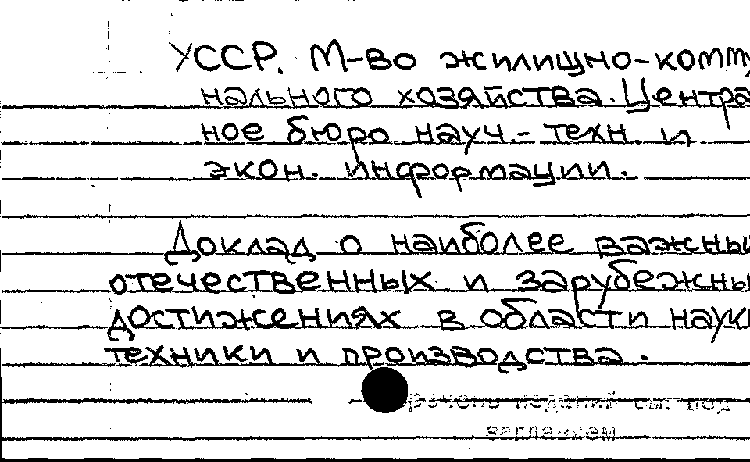 УССР. М-во жилищно-комму
нального хозяйства. Центра
ное бюро науч.- техн. и
экон. информации.
Доклад о наиболее важны
отечественных и зарубежны
достижениях в области наук
техники и производства.
под
заглавием